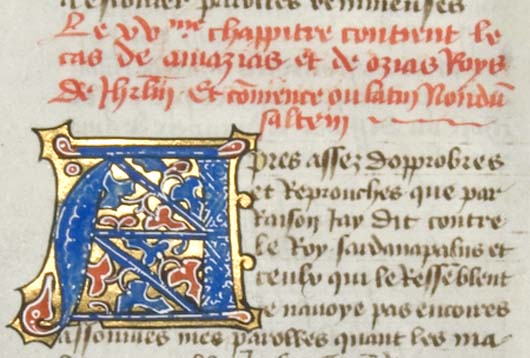 parolles venimeuses
Le xv.me chappitre contient le
cas de amazias et de ozias Roys
de Jhrlm Et comence ou latin Nondu
saltem
Apres assez dopprobres
et Reprouches que par
Raison Jay dit contre
le Roy sardanapalus et
ceulx qui le Ressemblent
Je nauoye pas encores
assouuies mes parolles quant les ma